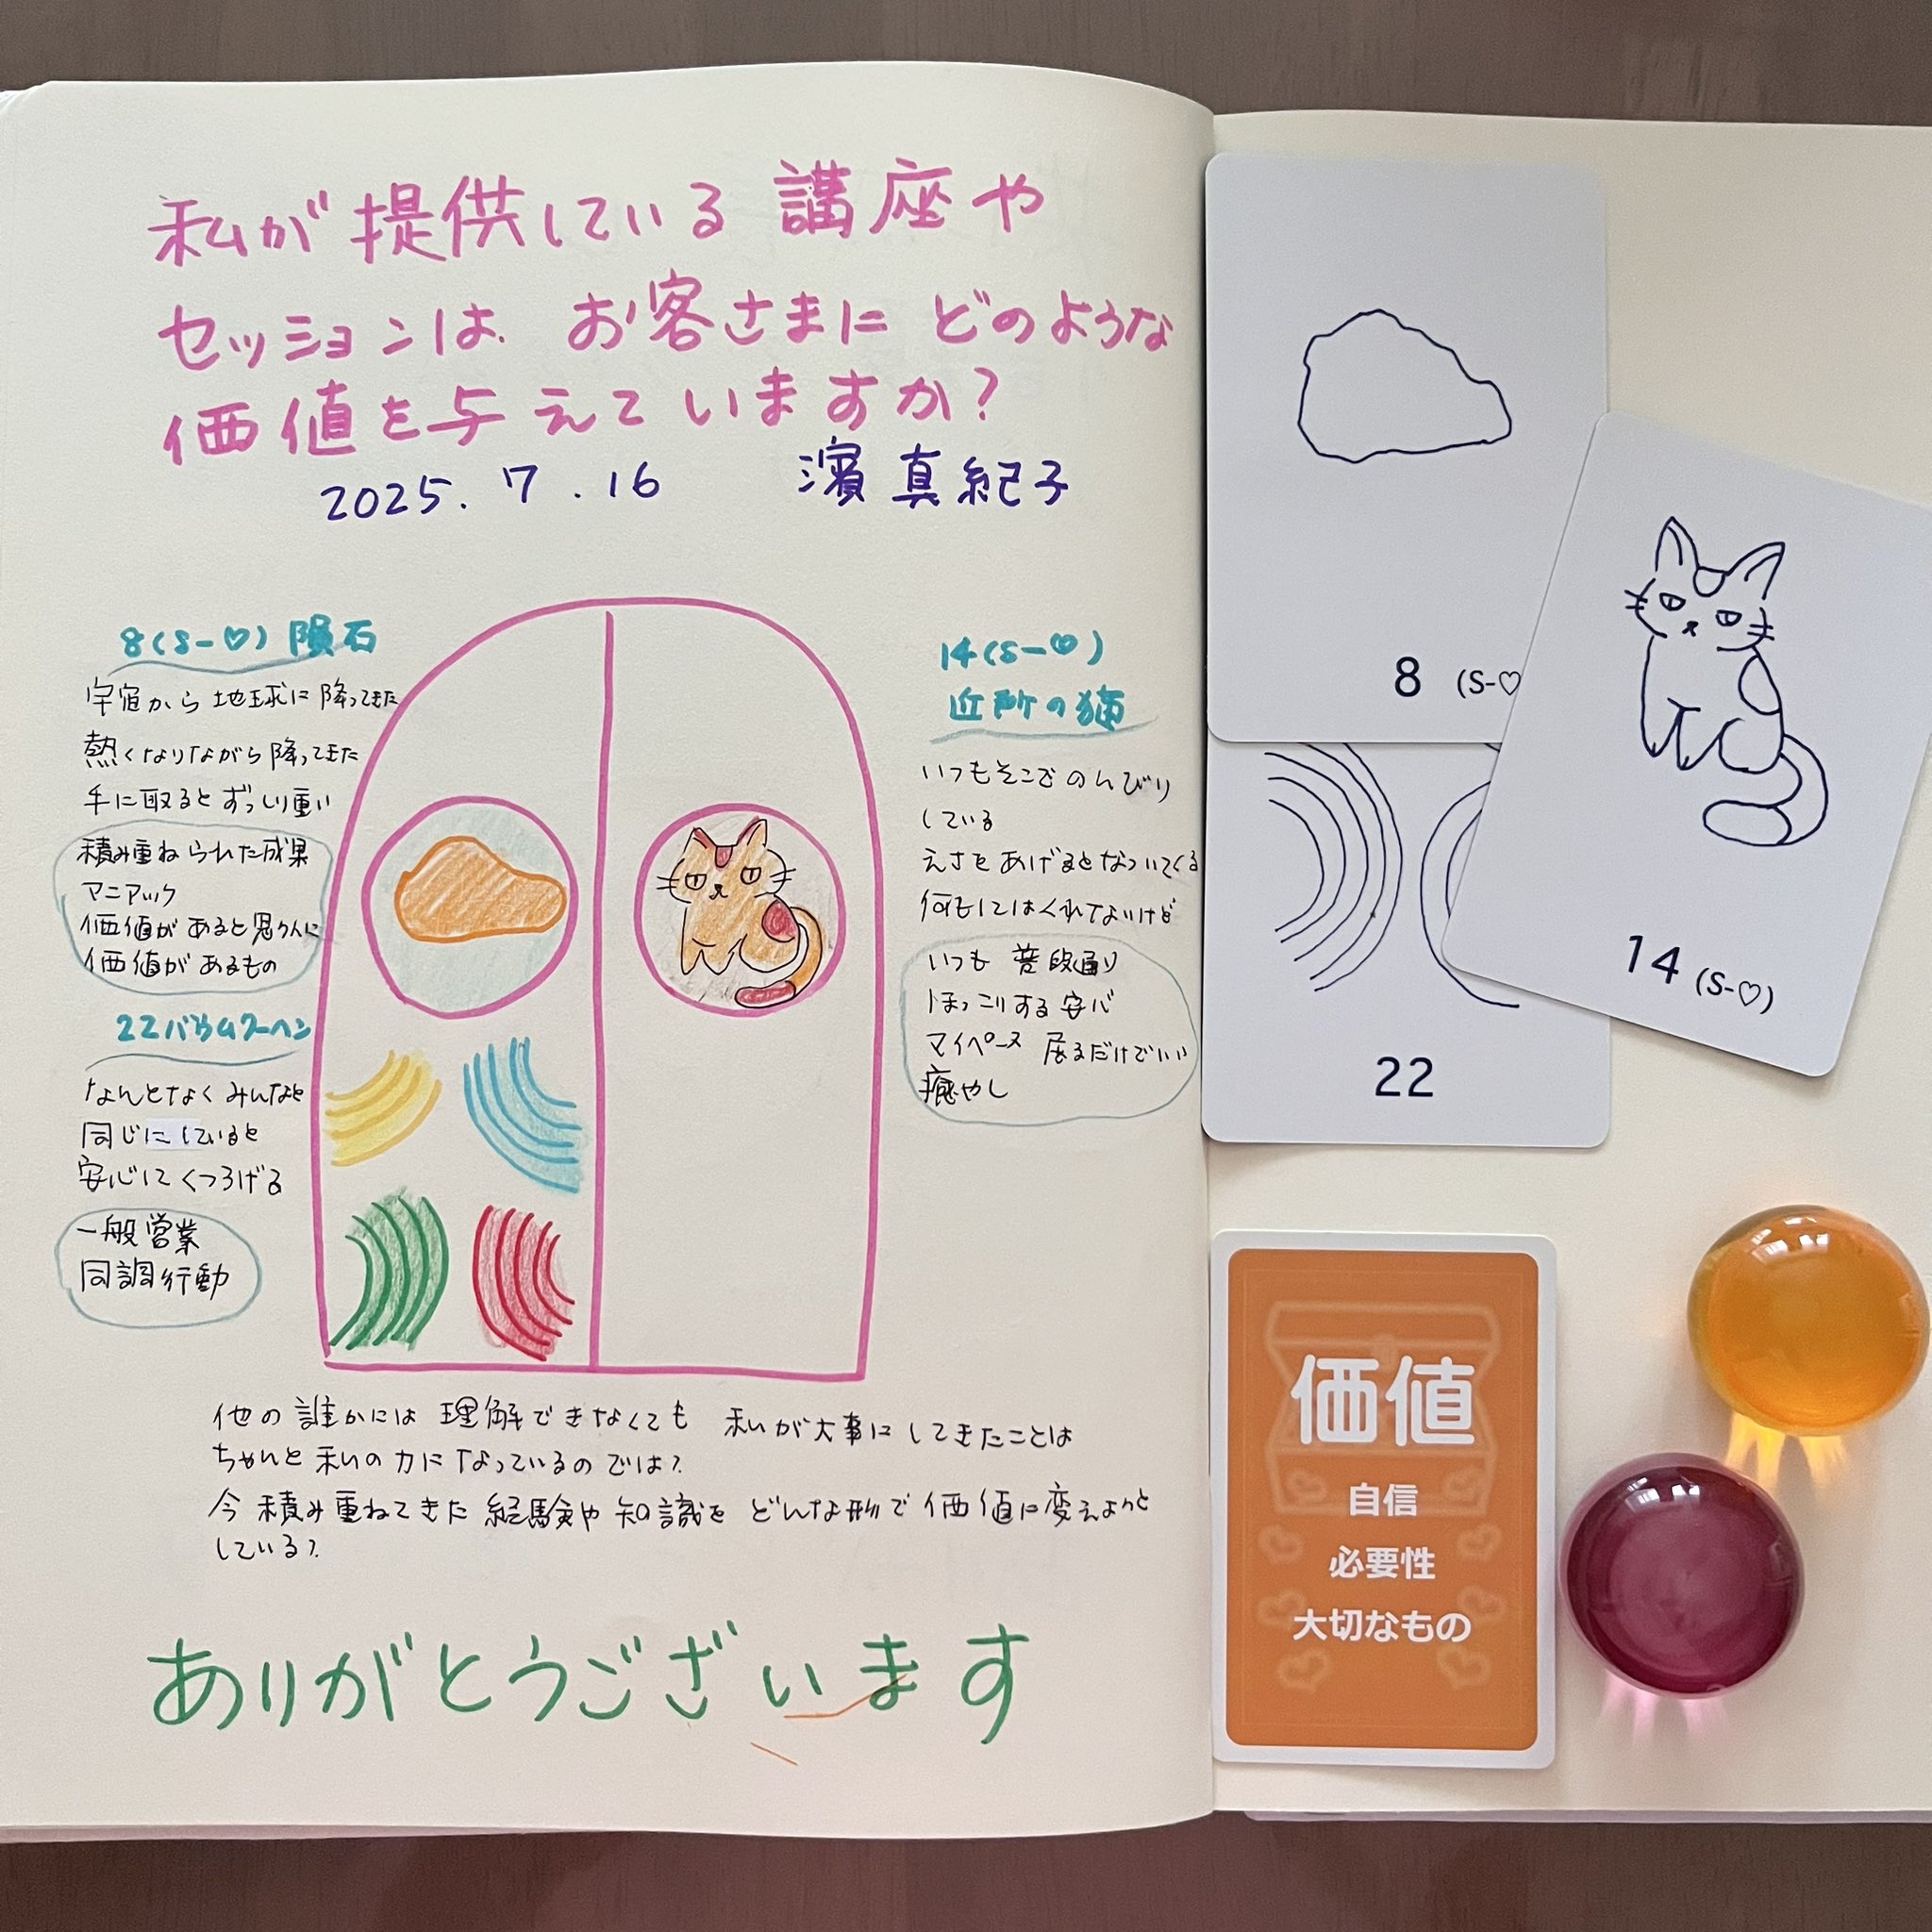 私が提供している講座や
セッションは、お客さまにどのような
価値を与えていますか?
2025.7.16 濱 真紀子
8(S-♡) 隕石
宇宙から地球に降ってきた
熱くなりながら降ってきた
手に取るとずっしり重い
積み重ねられた成果
マニアック
価値があると思う人に
価値があるもの
22 バウムクーヘン
なんとなくみんなと
同じにしていると
安心してくつろげる
一般営業
同調行動
14(S-♡)
近所の猫
いつもそこでのんびり
している
えさをあげるとなついてくる
何もしてはくれないけど
いつも 普段通り
ほっこりする 安心
マイペース 居るだけでいい
癒やし
他の誰かには理解できなくても 私が大事にしてきたことは
ちゃんと私の力になっているのでは?
今積み重ねてきた経験や知識を どんな形で価値に変えようと
している?
ありがとうございます
8 (S-♡
14 (S-♡)
22
価値
自信
必要性
大切なもの